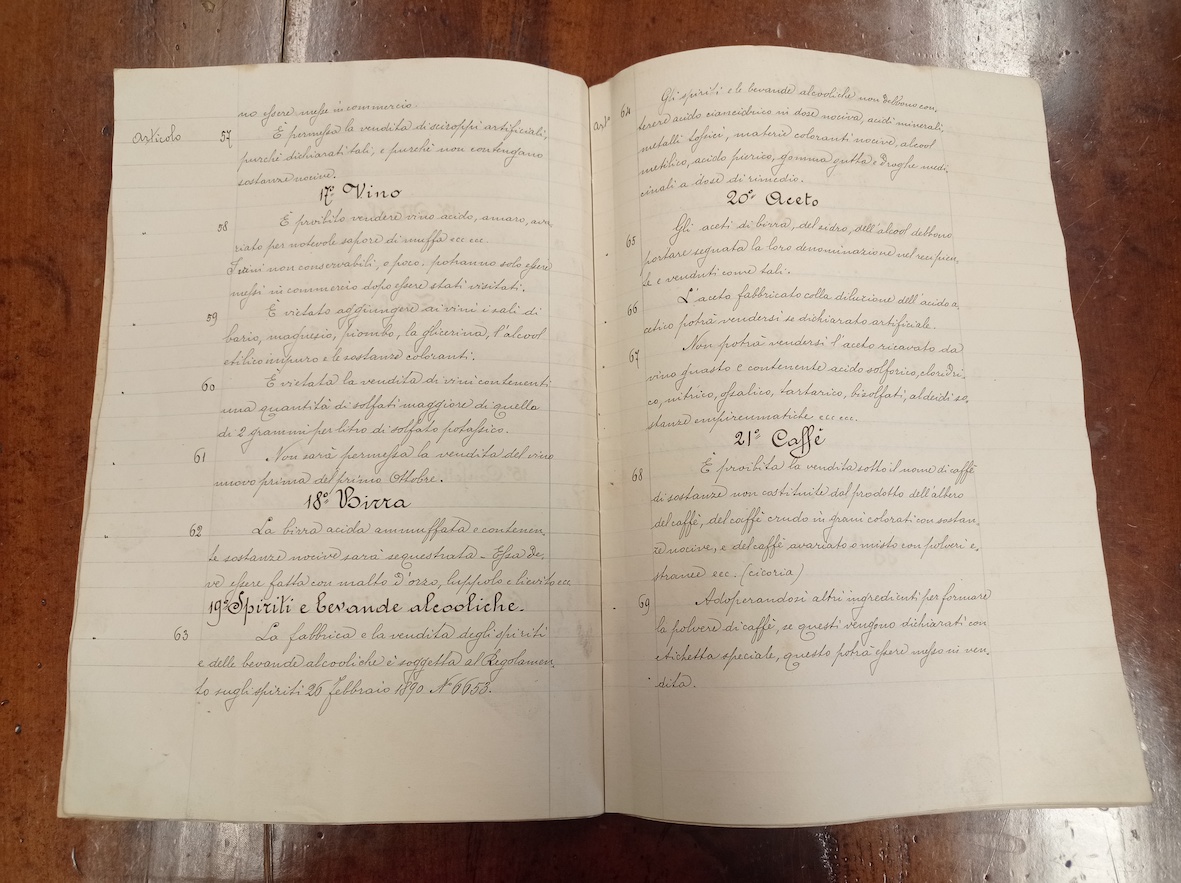 no essere messe in commercio.
Articolo 57 È permessa la vendita di sciroppi artificiali,
purchè dichiarati tali, e purchè non contengano
sostanze nocive.
17º Vino
58 È proibito vendere vino acido, amaro, ava,
riato per notevole sapore di muffa ecc ecc.
I vini non conservabili, o poco. potranno solo essere
messi in commercio dopo essere stati visitati.
59 È vietato aggiungere ai vini i sali di
bario, magnesio, piombo, la glicerina, l'alcool
etilico impuro e le sostanze coloranti.
60 È vietata la vendita di vini contenenti
una quantità di solfati maggiore di quella
di 2 grammi per litro di solfato potassico.
61 Non sarà permessa la vendita del vino
nuovo prima del primo Ottobre.
18º Birra
62 La birra acida ammuffata e contenen,
te sostanze nocive sarà sequestrata - Essa de,
ve essere fatta con malto d'orzo, luppolo e lievito ecc
19º Spiriti e bevande alcooliche.
63 La fabbrica e la vendita degli spiriti
e delle bevande alcooliche è soggetta al Regolamen,
to sugli spiriti 26 febbraio 1890 Nº 6653.
Artº 64 Gli spiriti e le bevande alcooliche non debbono con,
tenere acido ciancidrico in dose nociva, acidi minerali,
metalli tossici, materie coloranti nocive, alcool
metilico, acido picrico, gomma gutta e droghe medi,
cinali a dose di rimedio.
20º Aceto
65 Gli aceti di birra, del sidro, dell'alcool debbono
portare segnata la loro denominazione nel recipien,
te e venduti come tali.
66 L'aceto fabbricato colla diluzione dell'acido a,
cetico potrà vendersi se dichiarato artificiale.
67 Non potrà vendersi l'aceto ricavato da
vino guasto e contenente acido solforico, cloridri,
co, nitrico, ossalico, tartarico, bisolfati, aldeidi so,
stanze empireumatiche ecc ecc.
21º Caffè
68 È proibita la vendita sotto il nome di caffè
di sostanze non costituite dal prodotto dell'albero
del caffè, del caffè crudo in grani colorati con sostan,
ze nocive, e del caffè avariato o misto con polveri e,
stranee ecc. (cicoria)
69 Adoperandosi altri ingredienti per formare
la polvere di caffè, se questi vengono dichiarati con
etichetta speciale, questo potrà essere messo in ven,
dita.